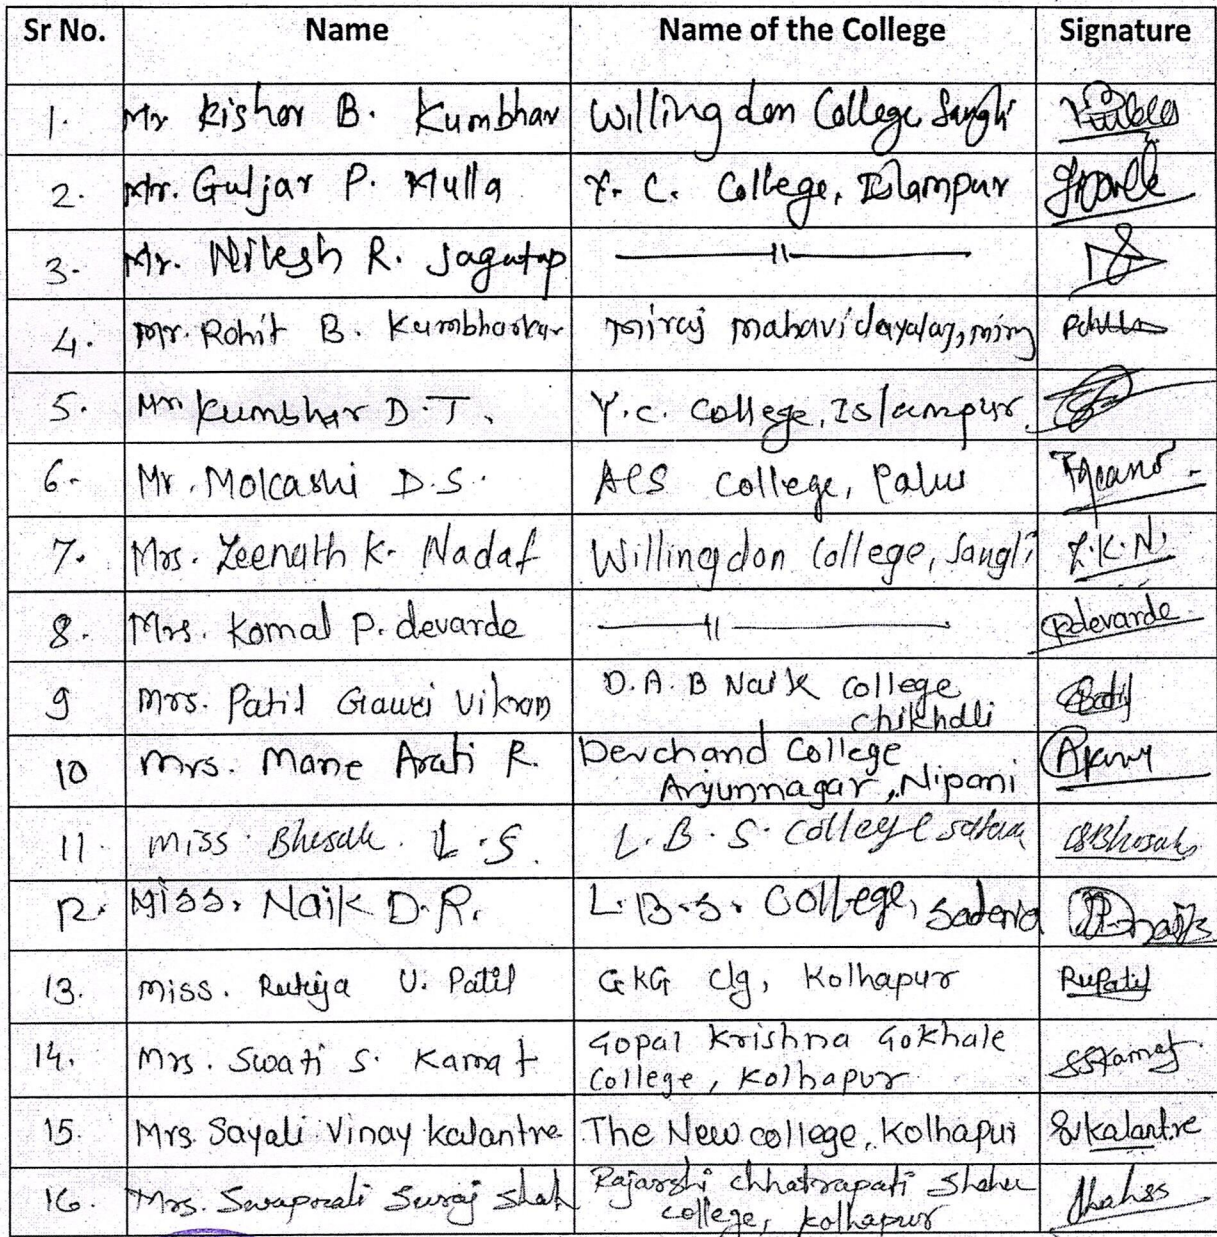 Sr No. Name Name of the College Signature
1. Mr Kishor B. Kumbhar Willingdon College, Sangli
2. Mr. Guljar P. Mulla Y. C. College, Islampur
3. Mr. Nilesh R. Jagatap —— 11 ——
4. Mr. Rohit B. Kumbharkar Miraj mahavidayalay, miraj
5. Mr. Kumbhar D.T. Y.C. College, Islampur
6. Mr. Molcashi D.S. ACS College, Palus
7. Mrs. Zeenath K. Nadaf Willingdon College, Sangli Z.K.N.
8. Mrs. Komal P. devarde —— 11 —— Kdevarde
9 Mrs. Patil Gauri Vikram D.A.B Naik College
Chikhdli
10 Mrs. Mane Arati R. Devchand College
Arjunnagar, Nipani
11 Miss. Bhosale L.S. L.B.S. College satara LSBhosale
12. Miss. Naik D.R. L.B.S. College, Satara DRnaik
13. Miss. Rutuja U. Patil GKG clg, Kolhapur RuPatil
14. Mrs. Swati S. Kamat Gopal Krishna Gokhale
College, Kolhapur SSKamat
15. Mrs. Sayali Vinay kalantre The New college, Kolhapur Svkalantre
16. Mrs. Swapnali Suraj Shah Rajarshi chhatrapati Shahu
College, Kolhapur Shahss